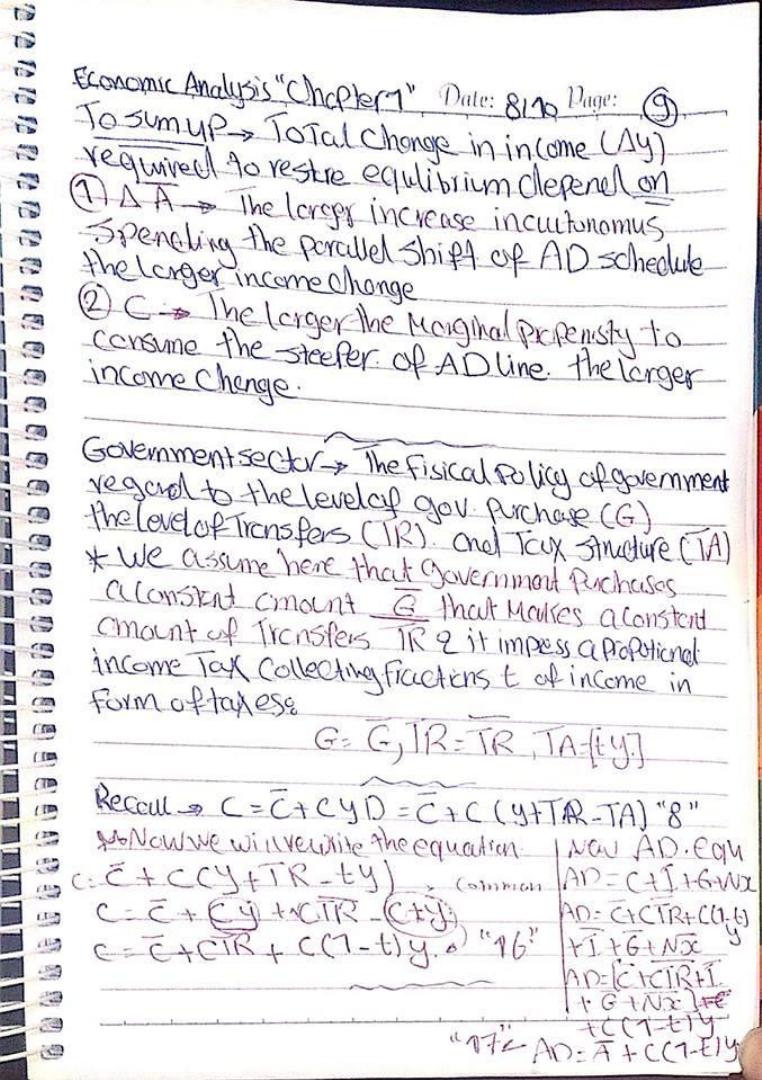 Economic Analysis "Chapter1" Date: 8/10 Page: 9
To sum up → Total Change in income (Δy)
required to restre equlibrium depend on
① Δ A̅ → The larger increase in autonomus
Spending the parallel shift of AD schedule
the larger income change
② C → The larger the Marginal Propenisty to
consume the steeper of AD line. the larger
income Change.
Government sector → The fisical Policy of government
regard to the level of gov. purchase (G)
the level of Transfers (TR). and Tax structure (TA)
* We assume here that government Purchases
a constant amount G̅ that Makes a constant
amount of Transfers T̅R̅ & it impess a propotional
income Tax Collecting fractions t of income in
form of taxes:
G = G̅, TR = T̅R̅, TA = [ty.]
Recall → C = C̅ + CYD = C̅ + C (y+TR-TA) "8"
Now we will rewrite the equation
C = C̅ + C(y + TR - ty) common
C = C̅ + Cy + CTR - C+y
C = C̅ + CT̅R̅ + C(1-t)y. "16"
Now AD. equ
AD = C+I+G+Nx
AD = C̅+CT̅R̅+C(1-t)y
+I̅+G̅+N̅x̅
AD = [C̅+CT̅R̅+I̅
+G̅+N̅x̅]
+C(1-t)y
"17" AD = A̅ + C(1-t)y